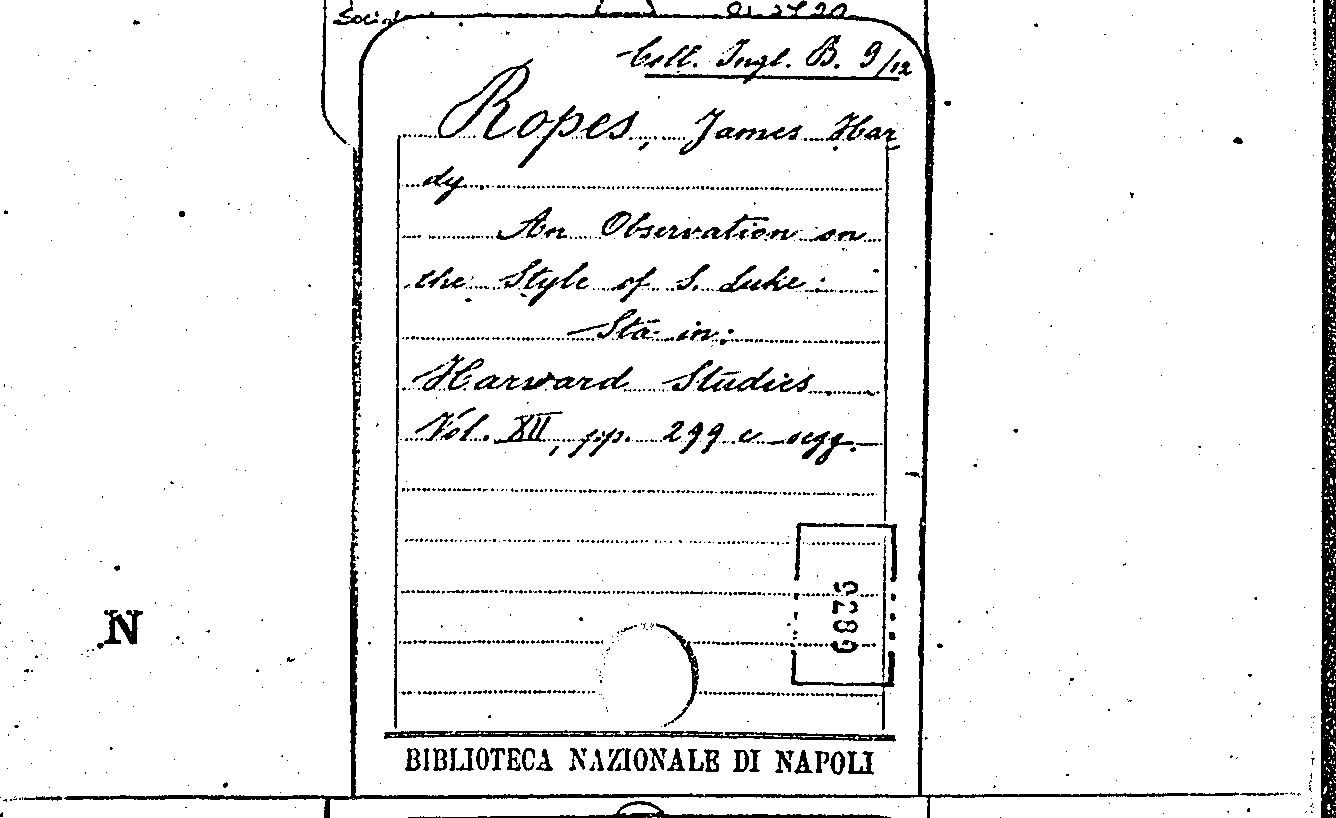 Coll. Ingl. B. 9/12
Ropes, James Har
dy.
An Observation on
the Style of S. Luke:
Sta in:
Harward Studies
Vol. XII, pp. 299 e segg.
9289
N
BIBLIOTECA NAZIONALE DI NAPOLI